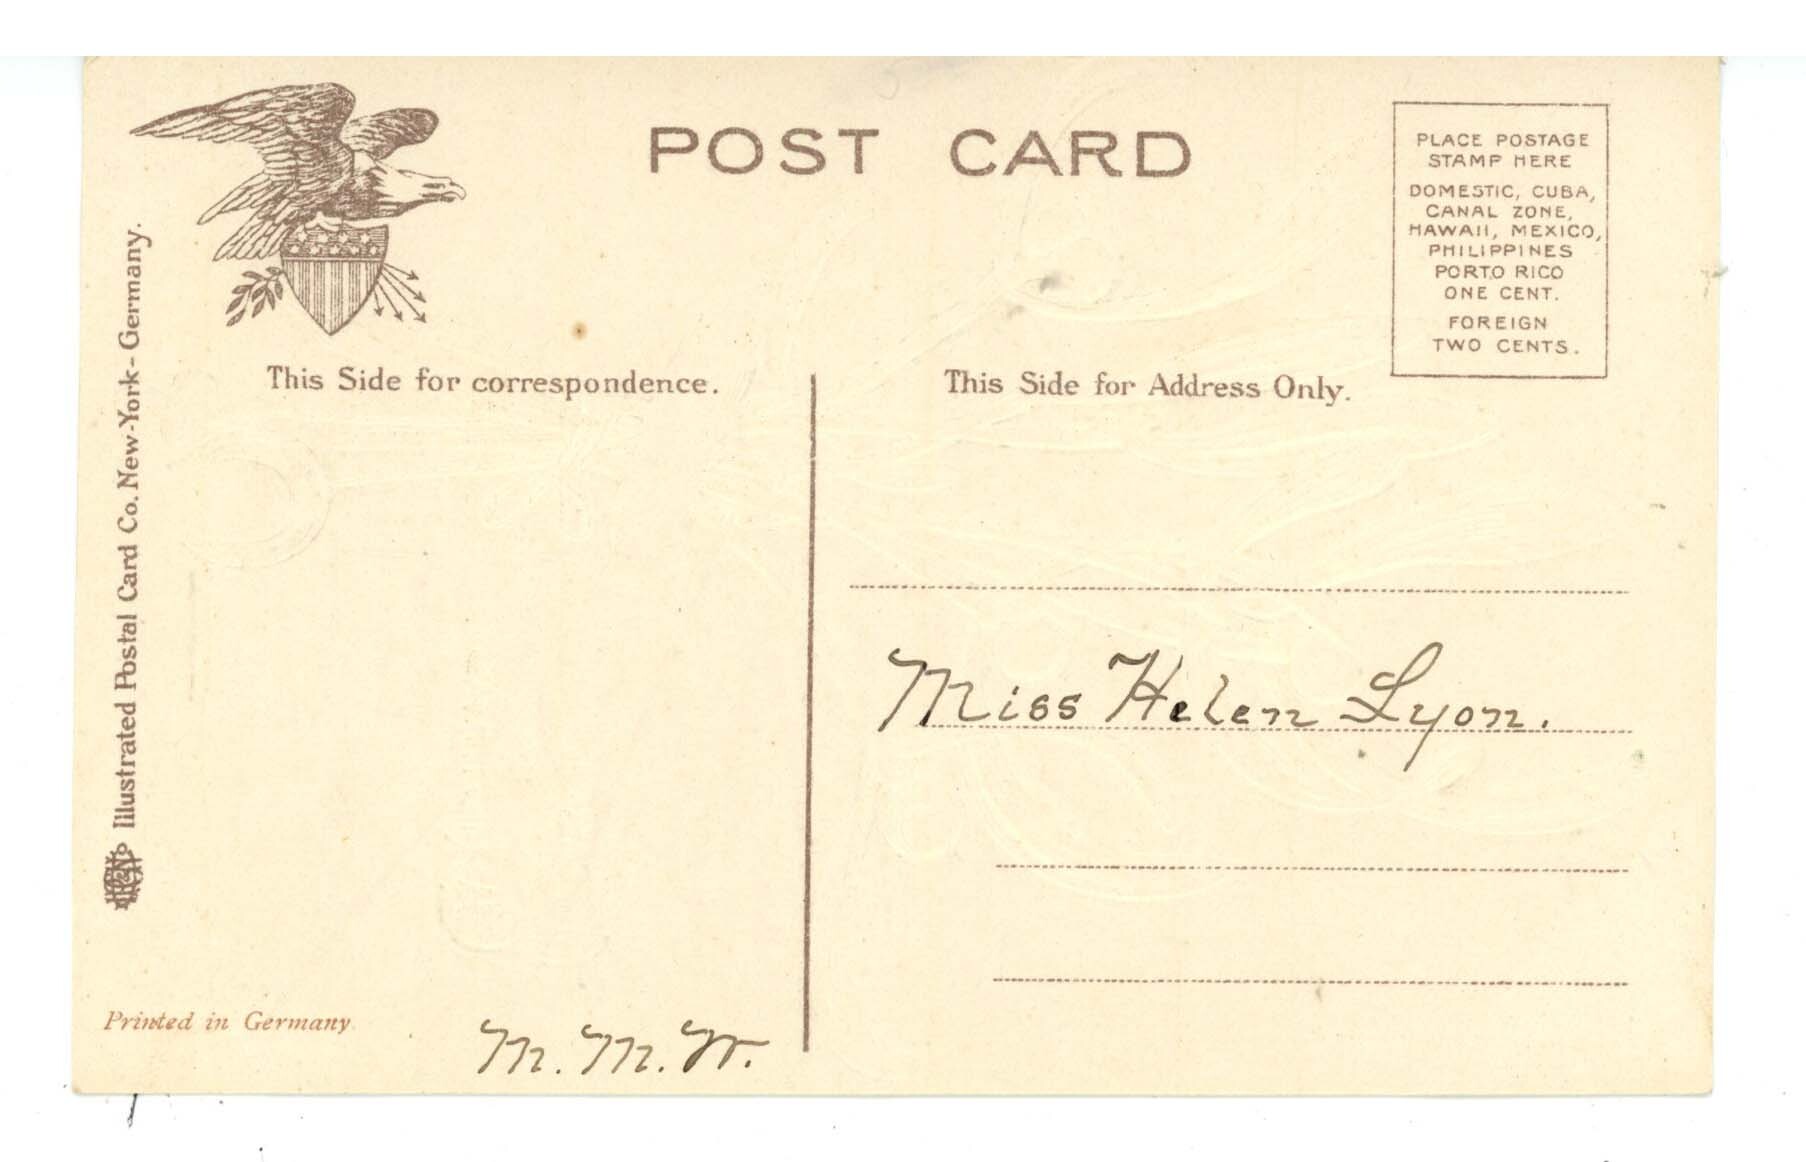 POST CARD
PLACE POSTAGE
STAMP HERE
DOMESTIC, CUBA,
CANAL ZONE,
HAWAII, MEXICO,
PHILIPPINES
PORTO RICO
ONE CENT.
FOREIGN
TWO CENTS.
This Side for correspondence.
This Side for Address Only.
Illustrated Postal Card Co. New-York - Germany.
Miss Helen Lyon.
Printed in Germany
M. M. W.